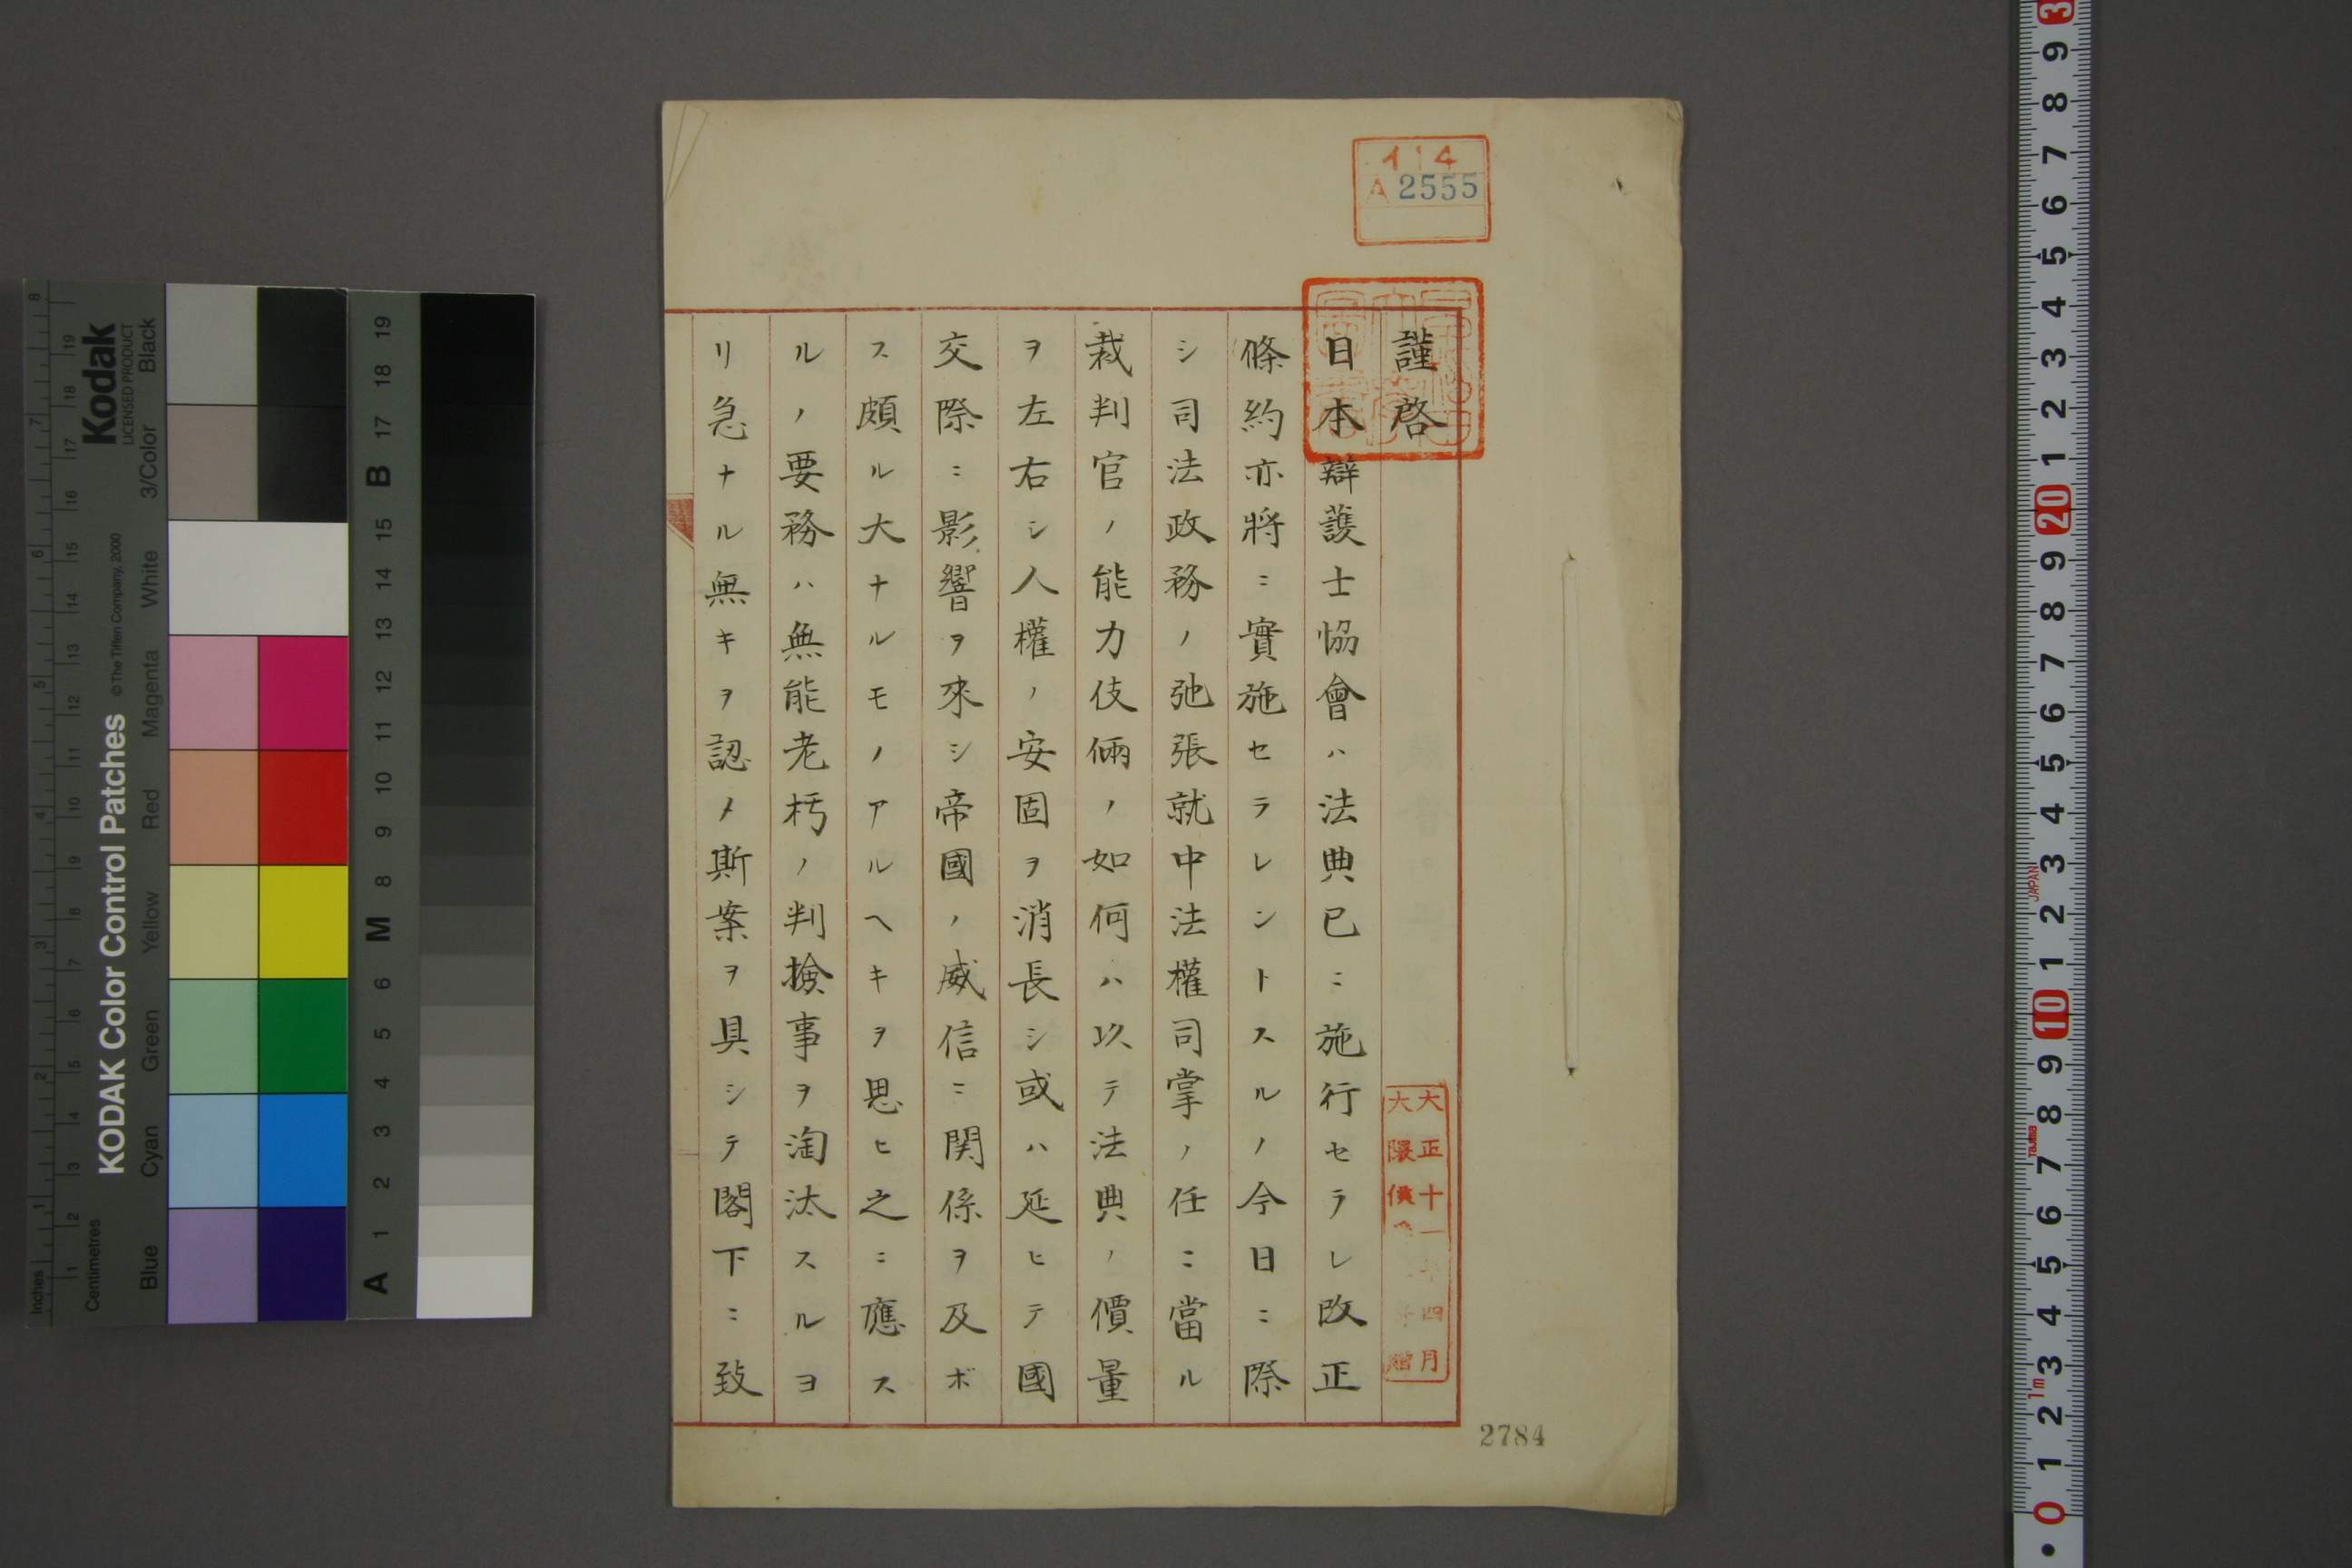 イ14
A 2555
謹啓
日本辯護士協會ハ法典已ニ施行セラレ改正
條約亦將ニ實施セラレントスルノ今日ニ際
シ司法政務ノ弛張就中法權司掌ノ任ニ當ル
裁判官ノ能力伎倆ノ如何ハ以テ法典ノ價量
ヲ左右シ人權ノ安固ヲ消長シ或ハ延ヒテ國
交際ニ影響ヲ來シ帝國ノ威信ニ関係ヲ及ボ
ス頗ル大ナルモノアルヘキヲ思ヒ之ニ應ス
ルノ要務ハ無能老朽ノ判撿事ヲ淘汰スルヨ
リ急ナル無キヲ認メ斯案ヲ具シテ閣下ニ致
大正十一年四月
大隈侯 贈
2784
KODAK Color Control Patches
© The Tiffen Company, 2000
Kodak
LICENSED PRODUCT
Inches
Centimetres
Blue Cyan Green Yellow Red Magenta White 3/Color Black
A 1 2 3 4 5 6 M 8 9 10 11 12 13 14 15 B 17 18 19
JAPAN
Tajima
1m
0 1 2 3 4 5 6 7 8 9 10 1 2 3 4 5 6 7 8 9 20 1 2 3 4 5 6 7 8 9 3